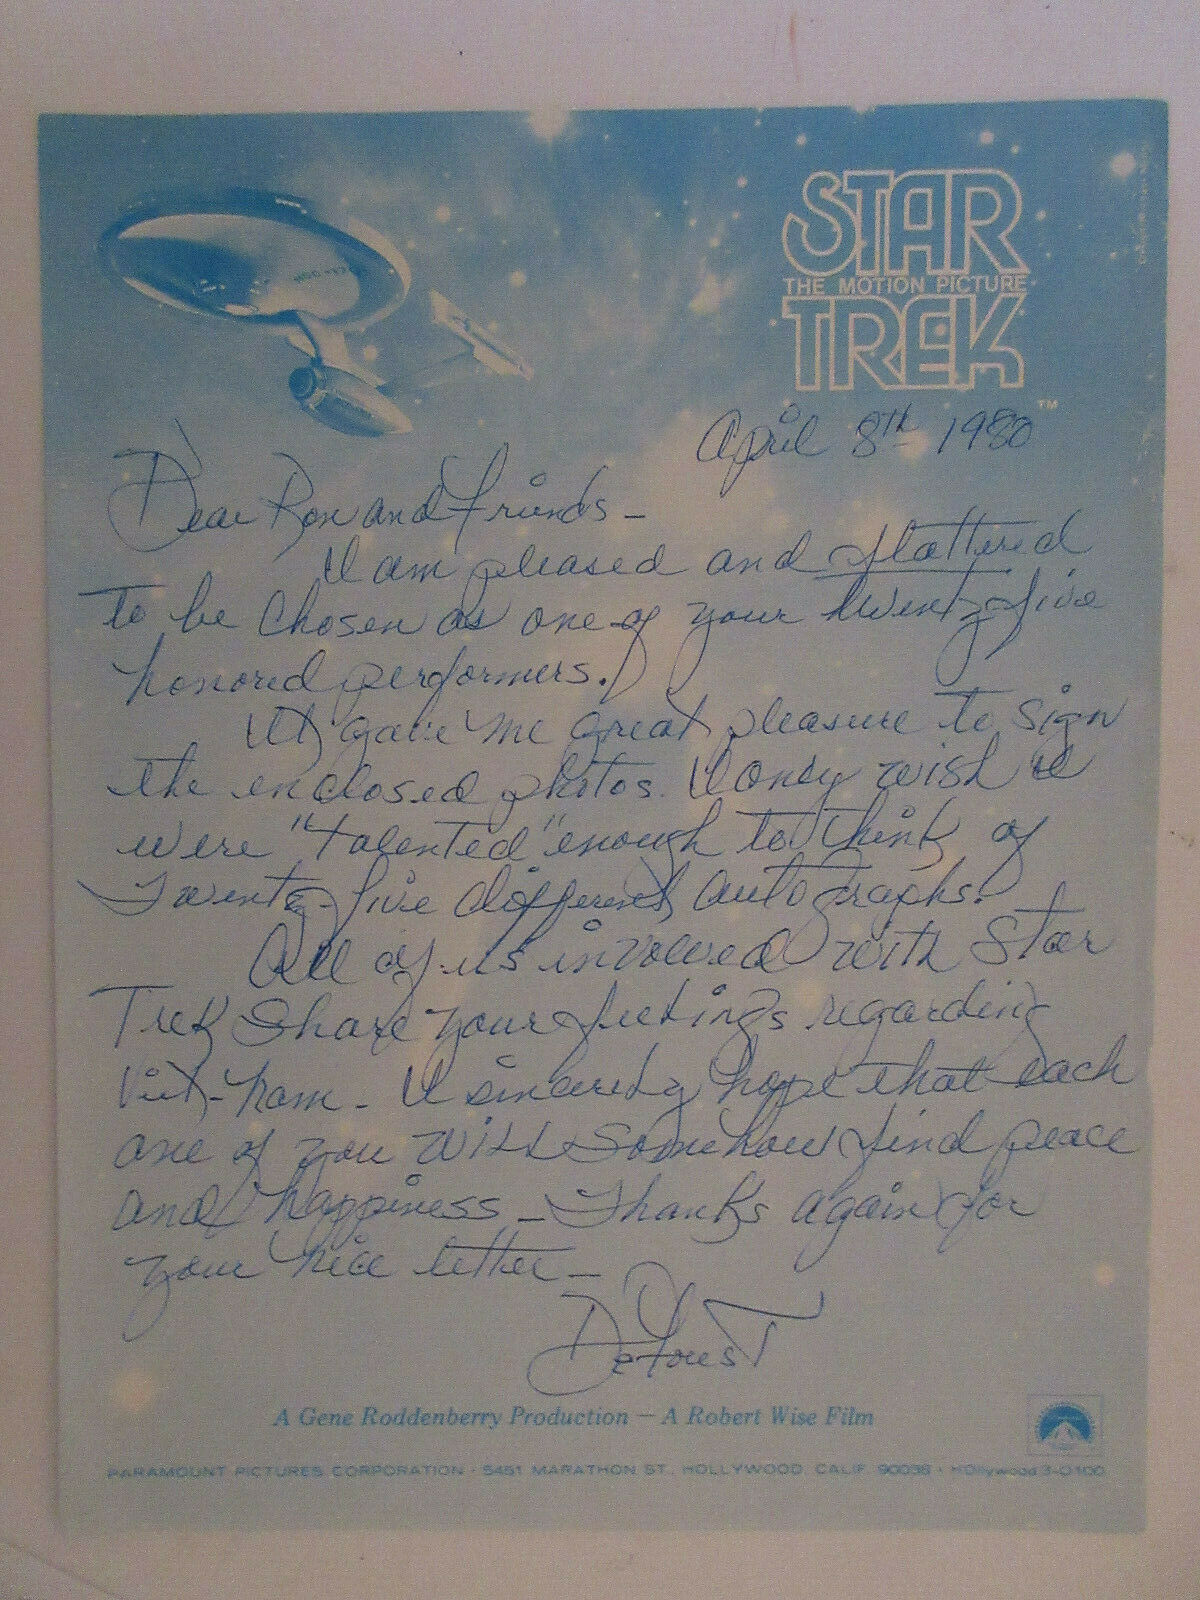 STAR
THE MOTION PICTURE
TREK
TM
April 8th 1980
Dear Ron and friends -
I am pleased and flattered
to be chosen as one of your twenty five
honored performers.
It gave me great pleasure to sign
the enclosed photos. I only wish I
were "talented" enough to think of
Twenty-five different autographs.
All of us involved with Star
Trek share your feelings regarding
Viet-nam - I sincerely hope that each
one of you will somehow find peace
and happiness - Thanks again for
your nice letter -
DeForest
A Gene Roddenberry Production — A Robert Wise Film
PARAMOUNT PICTURES CORPORATION · 5451 MARATHON ST., HOLLYWOOD, CALIF. 90038 · HOllywood 3-0100